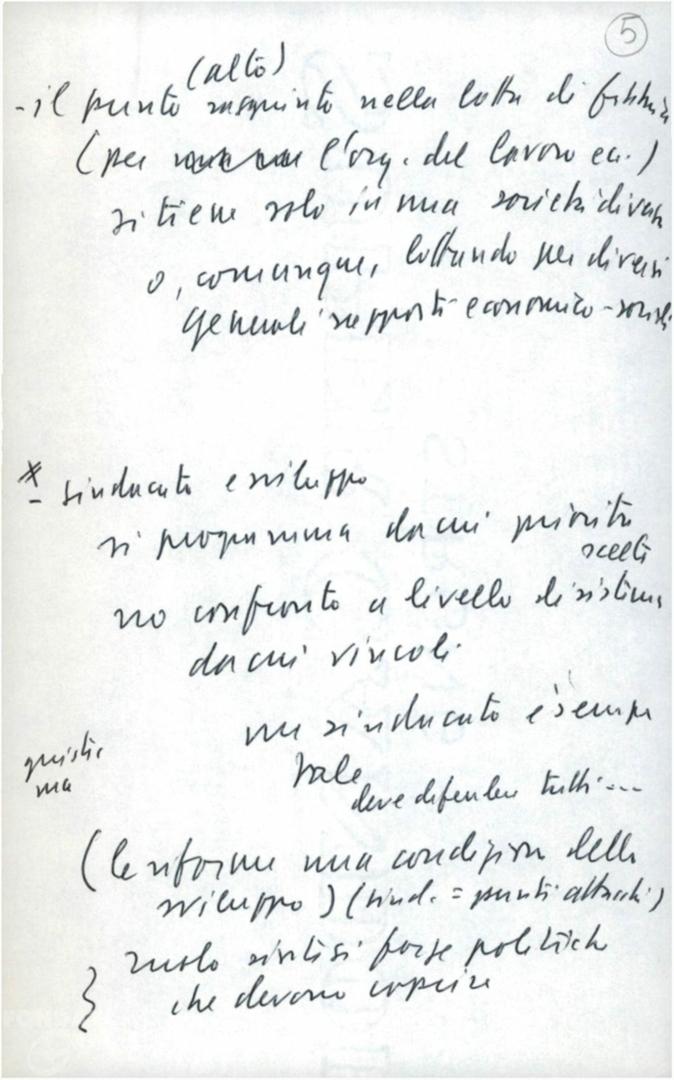 5
(alto)
- il punto raggiunto nella lotta di fabbrica
(per l'org. del lavoro ecc.)
si tiene solo in una società diversa
o, comunque, lottando per diversi
generali rapporti economico-sociali
* - sindacato e sviluppo
si programma da cui priorità
scelte
no confronto a livello di sistema
da cui vincoli
ma sindacato è sempre
tale
deve difendere tutti ...
giusti
ma
(le riforme una condizione dello
sviluppo) (sind. = punti attacchi)
} ruolo sintesi forze politiche
che devono capire